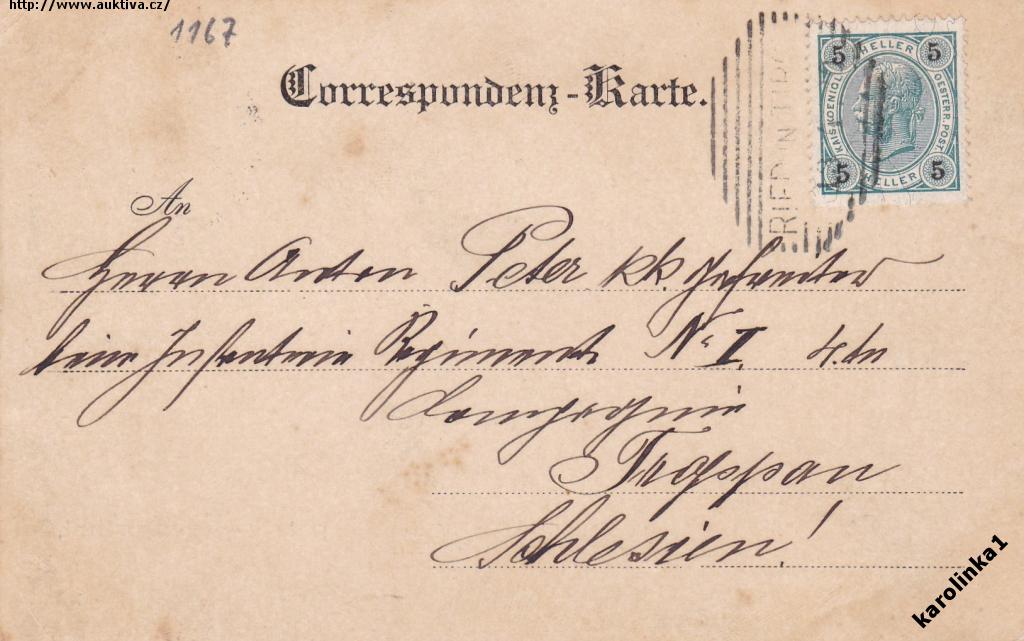 http://www.auktiva.cz/
1167
Correspondenz-Karte.
5 HELLER 5
KAIS. KOENIGL. OESTERR. POST.
5 HELLER 5
An
Herrn Anton Peter kk. Gefreiter
beim Infanterie Regiment No I. 4. tn
Compagnie
Troppau
Schlesien!
karolinka1